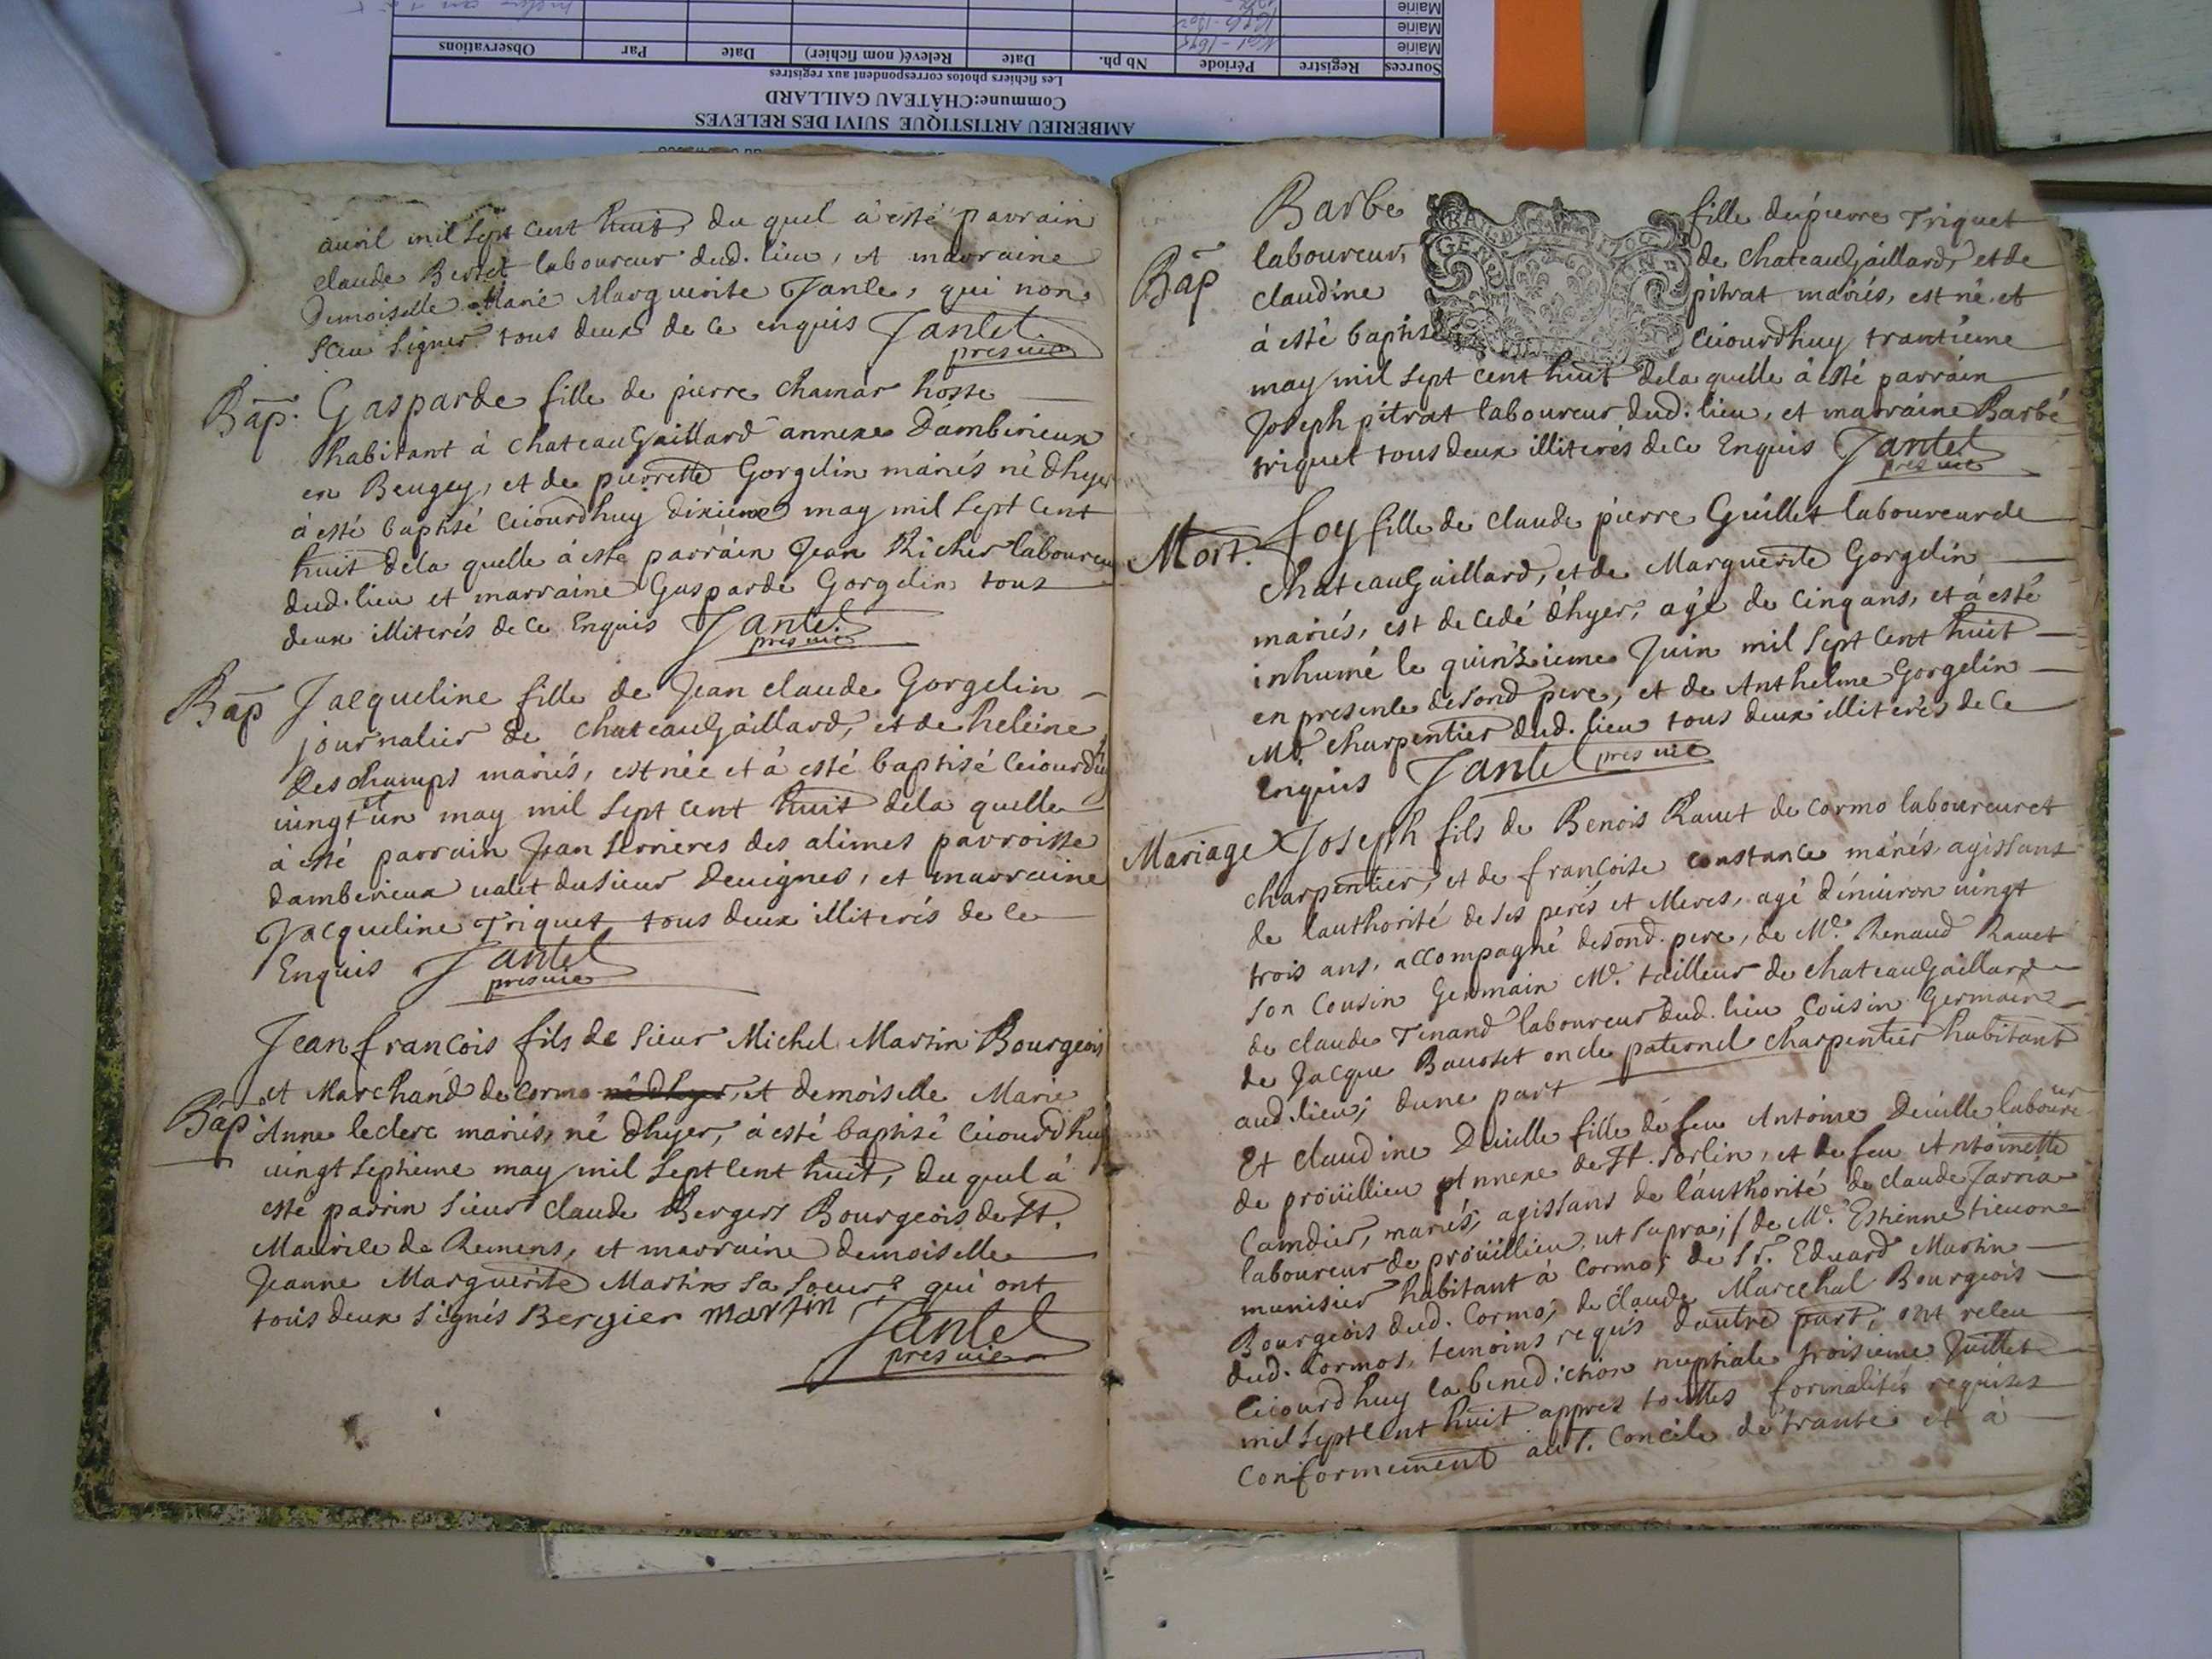 AMBERIEU ARTISTIQUE SUIVI DES RELEVES
Commune:CHÂTEAU GAILLARD
Les fichiers photos correspondent aux registres
Sources Registre Période Nb ph. Date Relevé( nom fichier) Date Par Observations
Mairie
Mairie
Mairie
auril mil sept cent huit, du quel à esté parrain
claude Bertet laboureur dud. lieu, et marraine
Demoiselle Marie Marguerite Janle, qui non
sceu signer tous deux de ce enquis Jantet
pres vic
Bap. Gasparde fille de pierre chamar hoste
habitant à chateauGaillard annexe Damberieux
en Beugey, et de pierrette Gorgelin mariés né dhyer
à esté baptisé ciiourdhuy dixieme may mil sept cent
huit dela quelle à esté parrain Jean Richer laboureur
dud. lieu et marraine Gasparde Gorgelin tous
deux illiterés de ce Enquis Jantet
pres vic
Bap Jacqueline fille de Jean claude Gorgelin
journalier de chateauGaillard, et de heleine
deschamps mariés, est née et à esté baptisé ciiourdhuy
uingt et un may mil sept cent huit dela quelle
à esté parrain Jean serrieres des alimes parroisse
damberieux ualet du sieur Deuignes, et marraine
Jacqueline Triquet tous deux illiterés de ce
Enquis Jantet
pres vic
Jean francois fils de sieur Michel Martin Bourgeois
et Marchand de Cormo né dhyer, et demoiselle Marie
Bap Anne leclerc mariés, né dhyer, à esté baptisé ciiourdhuy
uingt septieme may mil sept cent huit, du quel à
esté parrin sieur claude Bergier Bourgeois de St.
Maurice de Remens, et marraine demoiselle
Jeanne Marguerite Martin sa soeur, qui ont
tous deux signés Bergier martin Jantet
pres vic
Barbe fille de pierre Triquet
laboureur, de chateauGaillard, et de
Bap claudine pitrat mariés, est né et
à esté baptisé ciiourdhuy trantieme
may mil sept cent huit dela quelle à esté parrain
Joseph pitrat laboureur dud. lieu, et marraine Barbe
triquet tous deux illiterés de ce Enquis Jantet
pres vic
Mort. foy fille de claude pierre Guillet laboureur de
chateauGaillard, et de Marguerite Gorgelin
mariés, est decedé dhyer, agé de cinq ans, et à esté
inhumé le quinzieme Juin mil sept cent huit
en presence de sond pere, et de Anthelme Gorgelin
Me. charpentier dud. lieu tous deux illiterés de ce
enquis Jantet pres vic
Mariage Joseph fils de Benois Rauet de cormo laboureur et
charpentier, et de francoise constance mariés, agissans
de lauthorité de ses perés et Meres, agé dénuiron uingt
trois ans, accompagné de sond. pere, de Me. Renaud Rauet
son cousin Germain Me. tailleur de chateauGaillard
de claude Tenand laboureur dud. lieu cousin Germain
de Jacque Bausset oncle paternel charpentier habitant
aud. lieu; dune part
Et claudine Deuille fille de feu Antoine Deuille laboureur
de proüillieu Annexe de St. sorlin, et de feu Antoinette
Camdier, mariés, agissans de lauthorité de claude Jarria
laboureur de proüillieu, ut supra; de Me. Estienne
munisier habitant à cormo; de Sr. Eduard Martin
Bourgeois dud. Cormo; de claude Marcchal Bourgeois
dud. Cormos, temoins requis dautre part, ont receu
ciiourdhuy la benediction nuptiale troisieme Juillet
mil sept cent huit appres touttes formalités requises
conformement au S. concile de trante et à